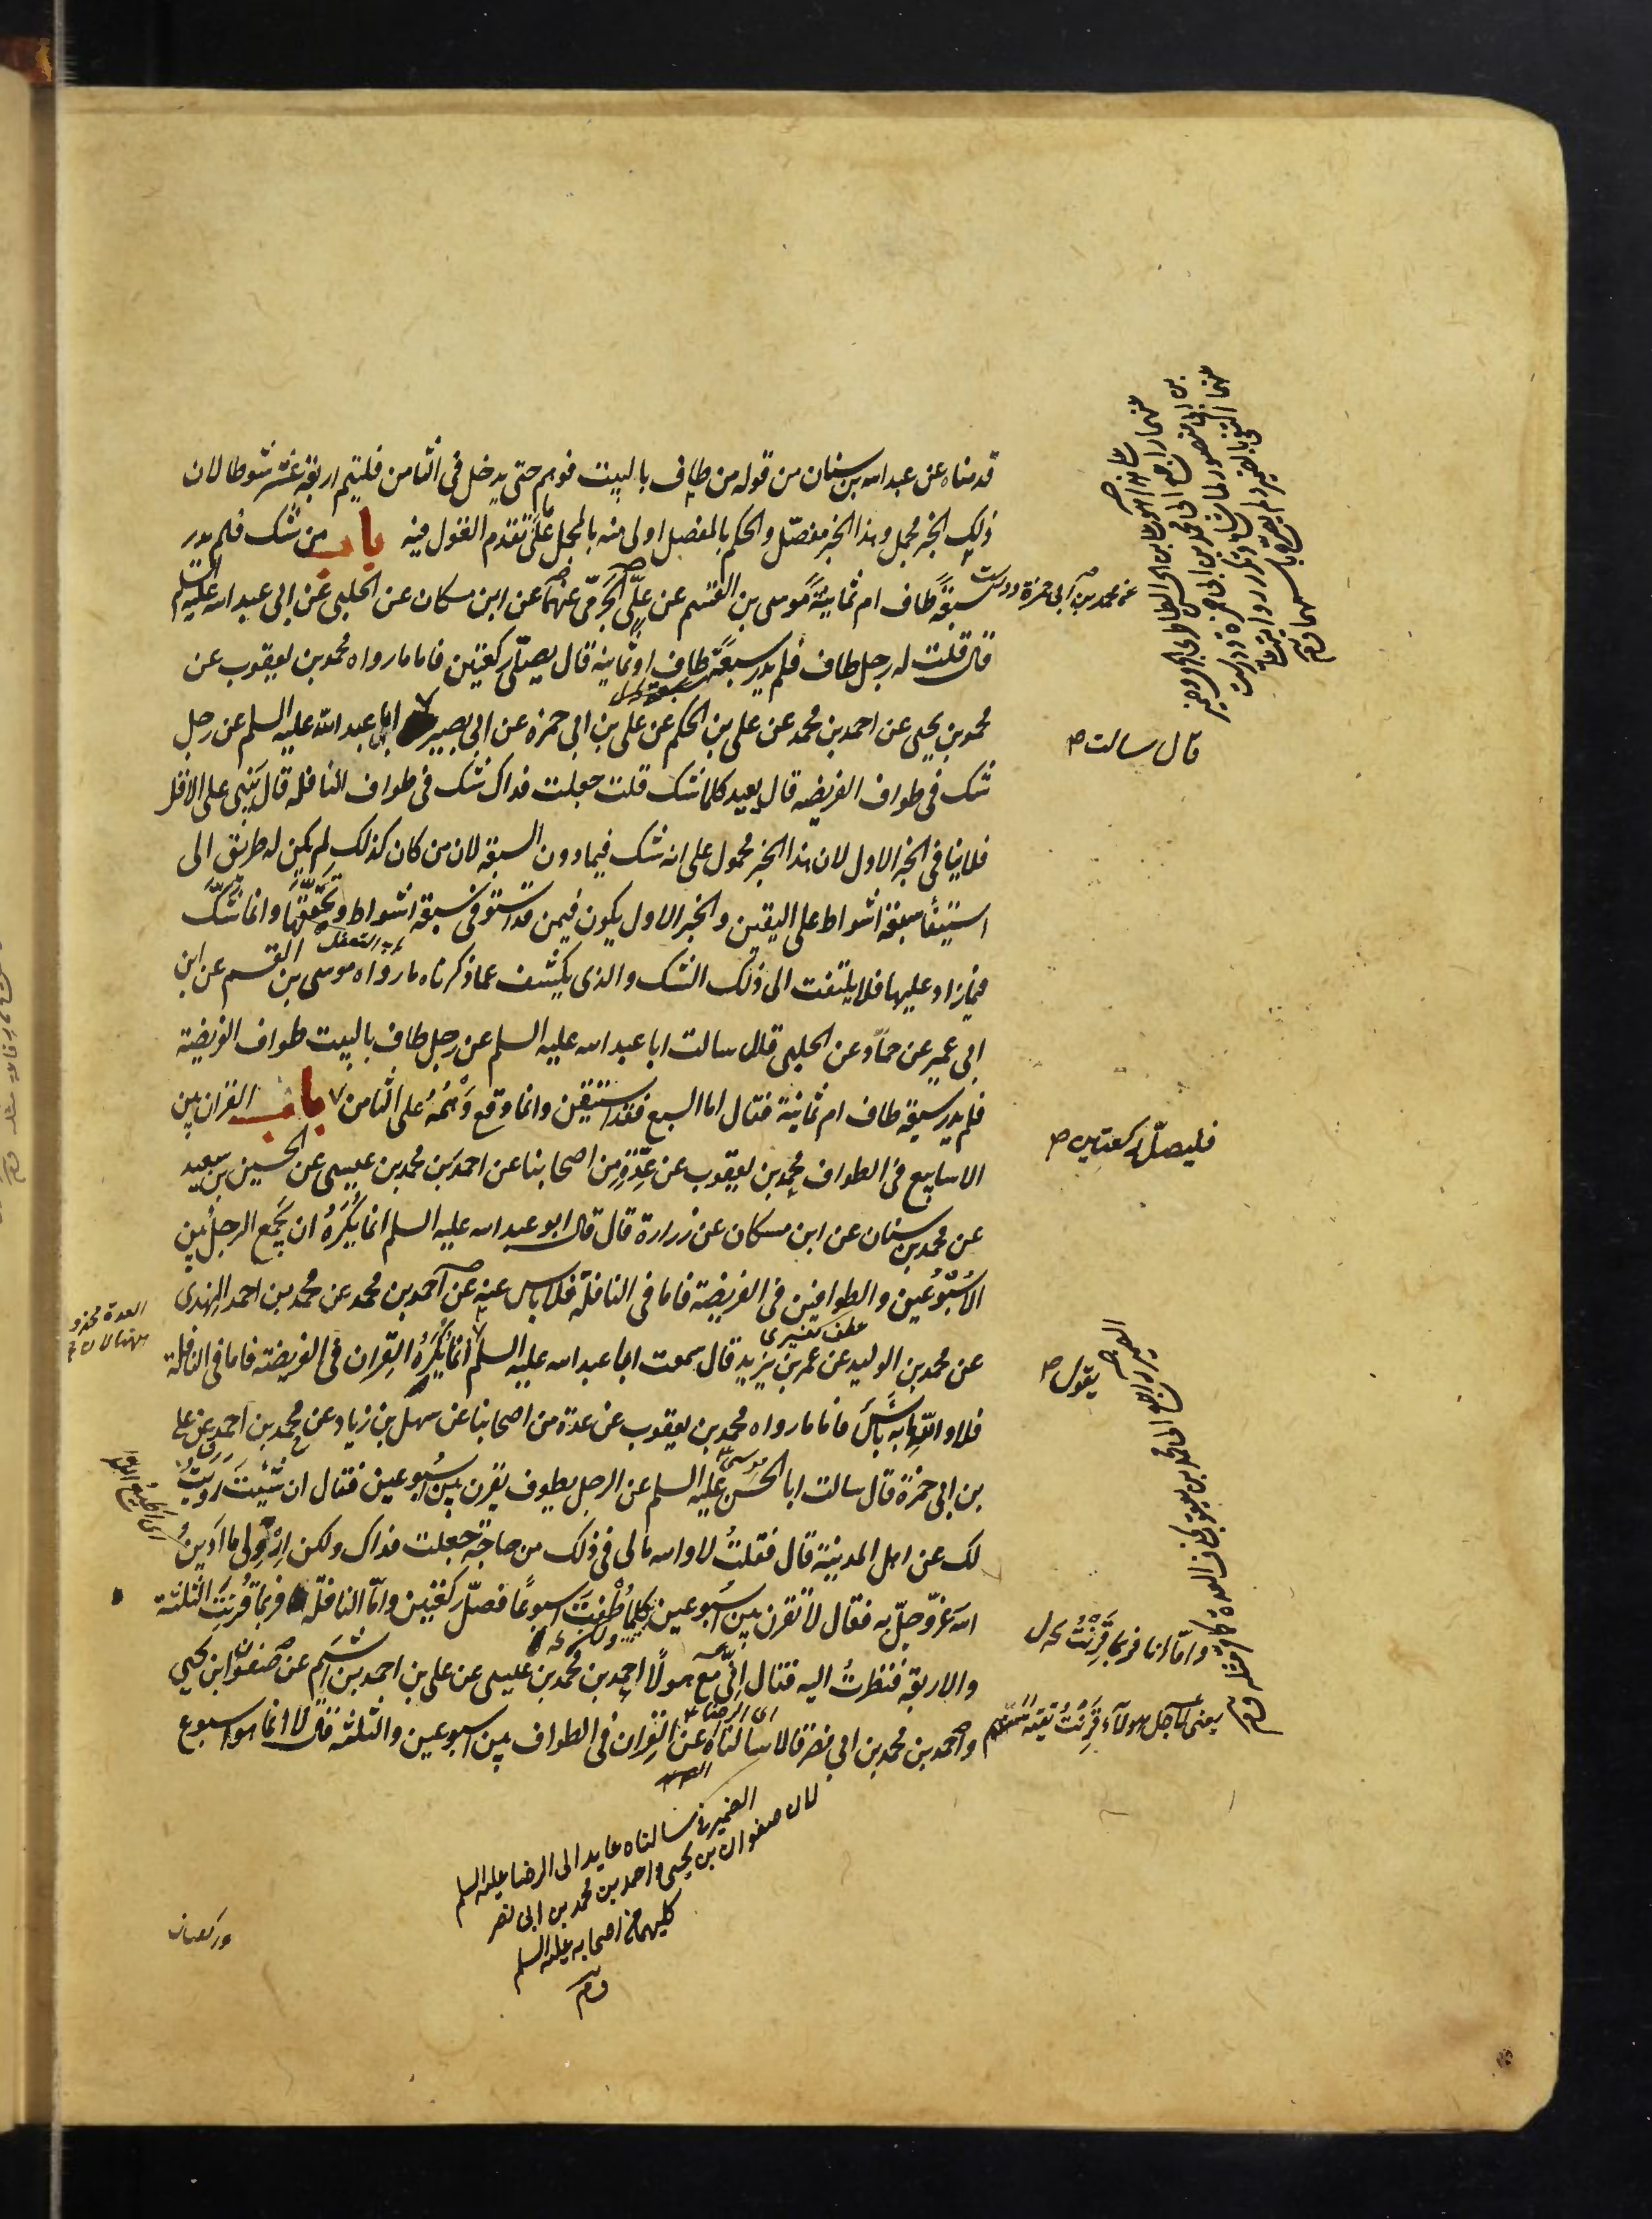 قدمناه عن عبد الله بن سنان من قوله من طاف بالبيت فوهم حتى يدخل فى الثامن فليتم اربعة عشر شوطا لان
ذلك الخبر مجمل وهذا الخبر مفصّل والحكم بالمفصل اولى منه بالمجمل على ما تقدم القول فيه باب من شك فلم يدر
سبعةً طاف ام ثمانيةً موسى بن القسم عن علىّ الجَرمىّ عنهما عن ابن مسكان عن الحلبى عن ابى عبد الله عليه السلم
قال قلت له رجل طاف فلم يدر سبعةً طاف او ثمانية قال يصلّى ركعتين فاما ما رواه محمد بن يعقوب عن
محمد بن يحيى عن احمد بن محمد عن على بن الحكم عن على بن ابى حمزه عن ابى بصير ابا عبد الله عليه السلم عن رجل
شك فى طواف الفريضه قال يعيد كلما شك قلت جعلت فداك شك فى طواف النافله قال يَبْنى على الاقل
فلا ينافى الخبر الاول لان هذا الخبر محمول على انه شك فيما دون السبعة لان من كان كذلك لم يكن له طريق الى
استيفاء سبعة اشواط على اليقين والخبر الاول يكون فيمن قد استوفى سبعة اشواط وتحققها وانما شكّ
فيما زاد عليها فلا يلتفت الى ذلك الشك والذى يكشف عما ذكرناه ما رواه موسى بن القسم عن ابن
ابى عمير عن حمّاد عن الحلبى قال سالت ابا عبد الله عليه السلم عن رجل طاف بالبيت طواف الفريضة
فلم يدر سبعة طاف ام ثمانية فقال اما السبع فقد استيقن وانما وقع وَهْمُهُ على الثامن باب القران بين
الاسابيع فى الطواف محمد بن يعقوب عن عِدّةٍ من اصحابنا عن احمد بن محمد بن عيسى عن الحسين بن سعيد
عن محمد بن سنان عن ابن مسكان عن زرارة قال قال ابو عبد الله عليه السلم انما يُكْرَهُ ان يَجمع الرجل بين
الاُسْبُوعَين والطوافين فى الفريضة فاما فى النافلة فلا باس عنه عن احمد بن محمد عن محمد بن احمد النهدى
عن محمد بن الوليد عن عمر بن يزيد قال سمعت ابا عبد الله عليه السلم انما يُكْرَهُ القِران فى الفريضة فاما فى النافلة
فلا والله ما به باسٌ فاما ما رواه محمد بن يعقوب عن عدة من اصحابنا عن سهل بن زياد عن محمد بن احمد عن على
بن ابى حمزة قال سالت ابا الحسن عليه السلم عن الرجل يطوف يقرن بين اُسْبوعين فقال ان شئتَ رويتُ
لك عن اهل المدينة قال فقلتُ لا والله مالى فى ذلك من حاجةٍ جعلت فداك ولكن ارْوِلى ما اَدِينُ
اللهَ عزّ وجلّ به فقال لا تقرن بين اُسْبوعين كلما طُفْتَ اسبوعًا فصلّ ركعتين وامّا النافلة فربما قرنتُ الثلثة
والاربعة فنظرتُ اليه فقال اِنّى مع هولآء احمد بن محمد بن عيسى عن على بن احمد بن اشيم عن صفوان ابن يحيى
واحمد بن محمد بن ابى نصر قالا سالناه عن القِران فى الطواف بين اسبوعين والثلثة قال لا انما هو اسبوع
عن محمد بن ابى حمزة ودرست
قال سالت
فليصلّ ركعتين
يقول
موسى
عطف تفسيرى
العدة محذو
وامّا انا فربما قَرَنْتُ
يعنى لاجل هولآء قَرَنْتُ تقيّةً
اى الرضا
الضمير فى سالناه عايد الى الرضا عليه السلم
لان صفوان بن يحيى واحمد بن محمد بن ابى نصر
كليهما من اصحابه عليه السلم
وركعتان